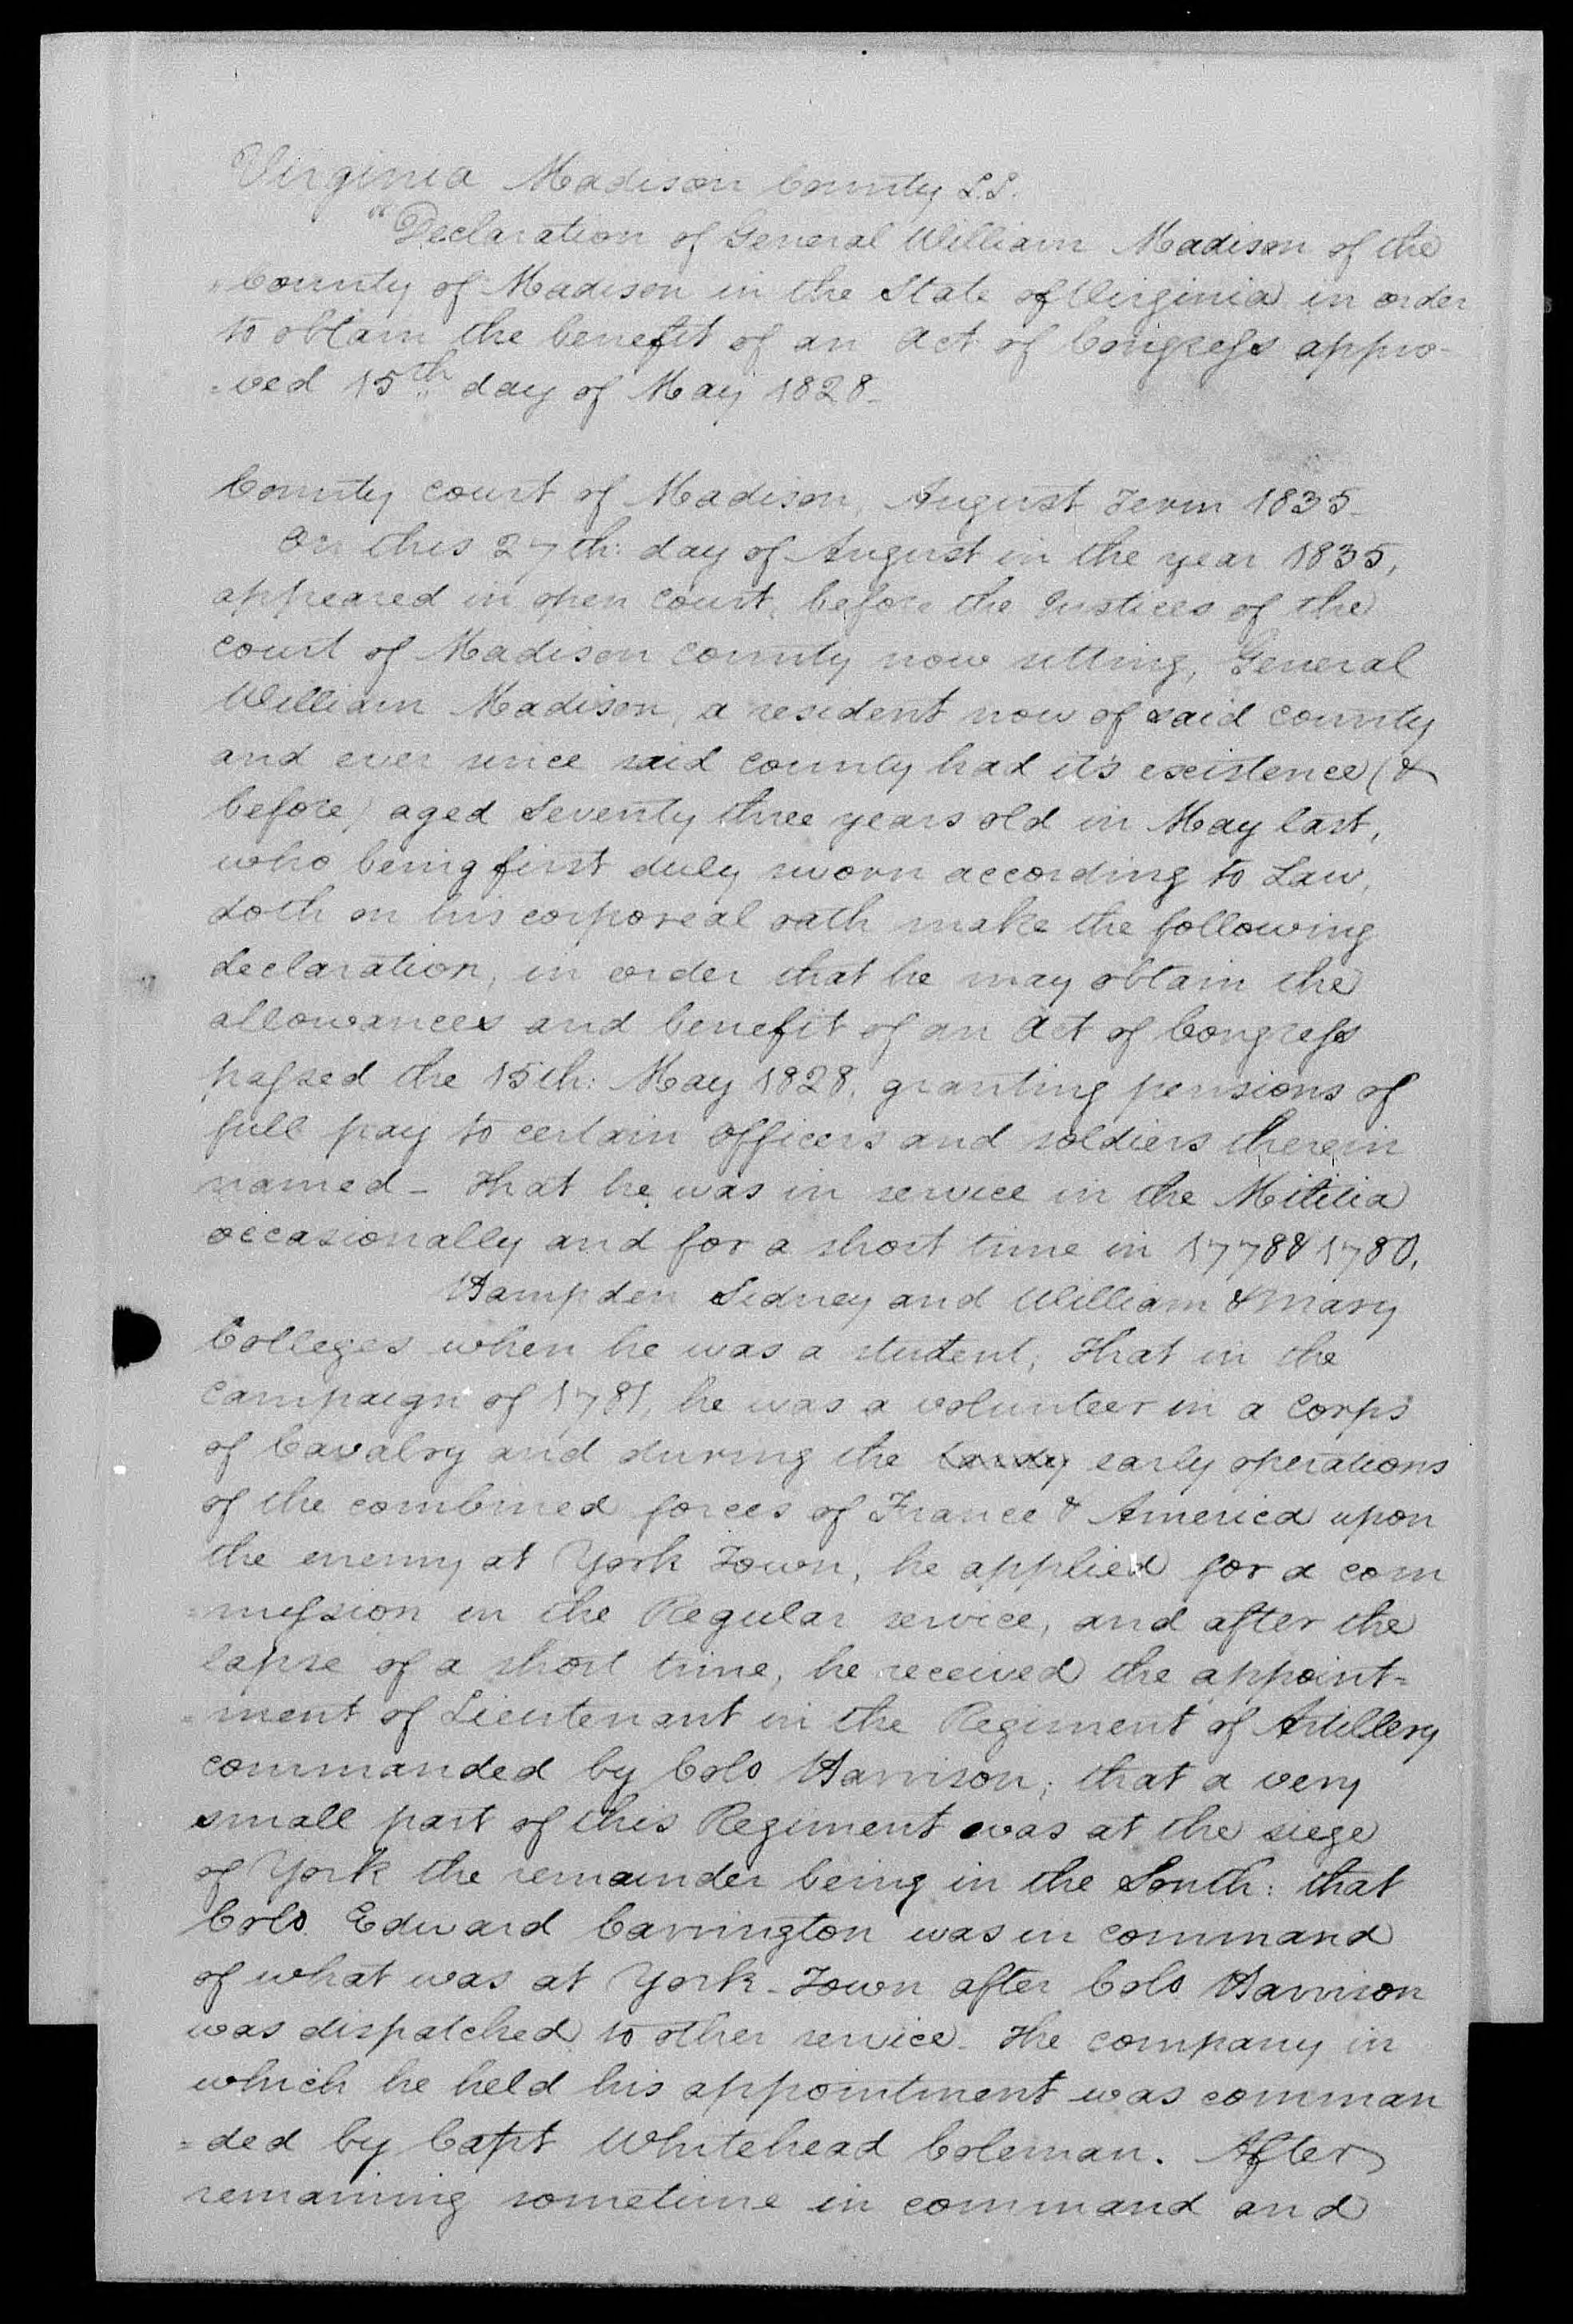 Virginia Madison County S.S.
"Declaration of General William Madison of the
County of Madison in the State of Virginia in order
to obtain the benefit of an Act of Congress appro-
=ved 15th day of May 1828_
County court of Madison, August Term 1835_
On this 27th: day of August in the year 1835,
appeared in open court, before the Justices of the
court of Madison county now sitting, General
William Madison, a resident now of said county
and ever since said county had it's existence (&
before) aged Seventy three years old in May last,
who being first duly sworn according to Law,
doth on his corporeal oath make the following
declaration, in order that he may obtain the
allowances and benefit of an Act of Congress
passed the 15th: May 1828, granting pensions of
full pay to certain officers and soldiers therein
named_ That he was in service in the Militia
occasionally and for a short time in 1778 & 1780,
Hampden Sidney and William & Mary
Colleges when he was a student; That in the
campaign of 1781, he was a volunteer in a Corps
of Cavalry and during the early operations
of the combined forces of France & America upon
the enemy at York Town, he applied for a com
=mission in the Regular service, and after the
lapse of a short time, he received the appoint=
=ment of Lieutenant in the Regiment of Artillery
commanded by Colo Harrison; that a very
small part of this Regiment was at the siege
of York the remainder being in the South: that
Colo. Edward Carrington was in command
of what was at York-Town after Colo Harrison
was dispatched to other service_ The company in
which he held his appointment was comman
=ded by Capt Whitehead Coleman. After
remaining sometime in command and